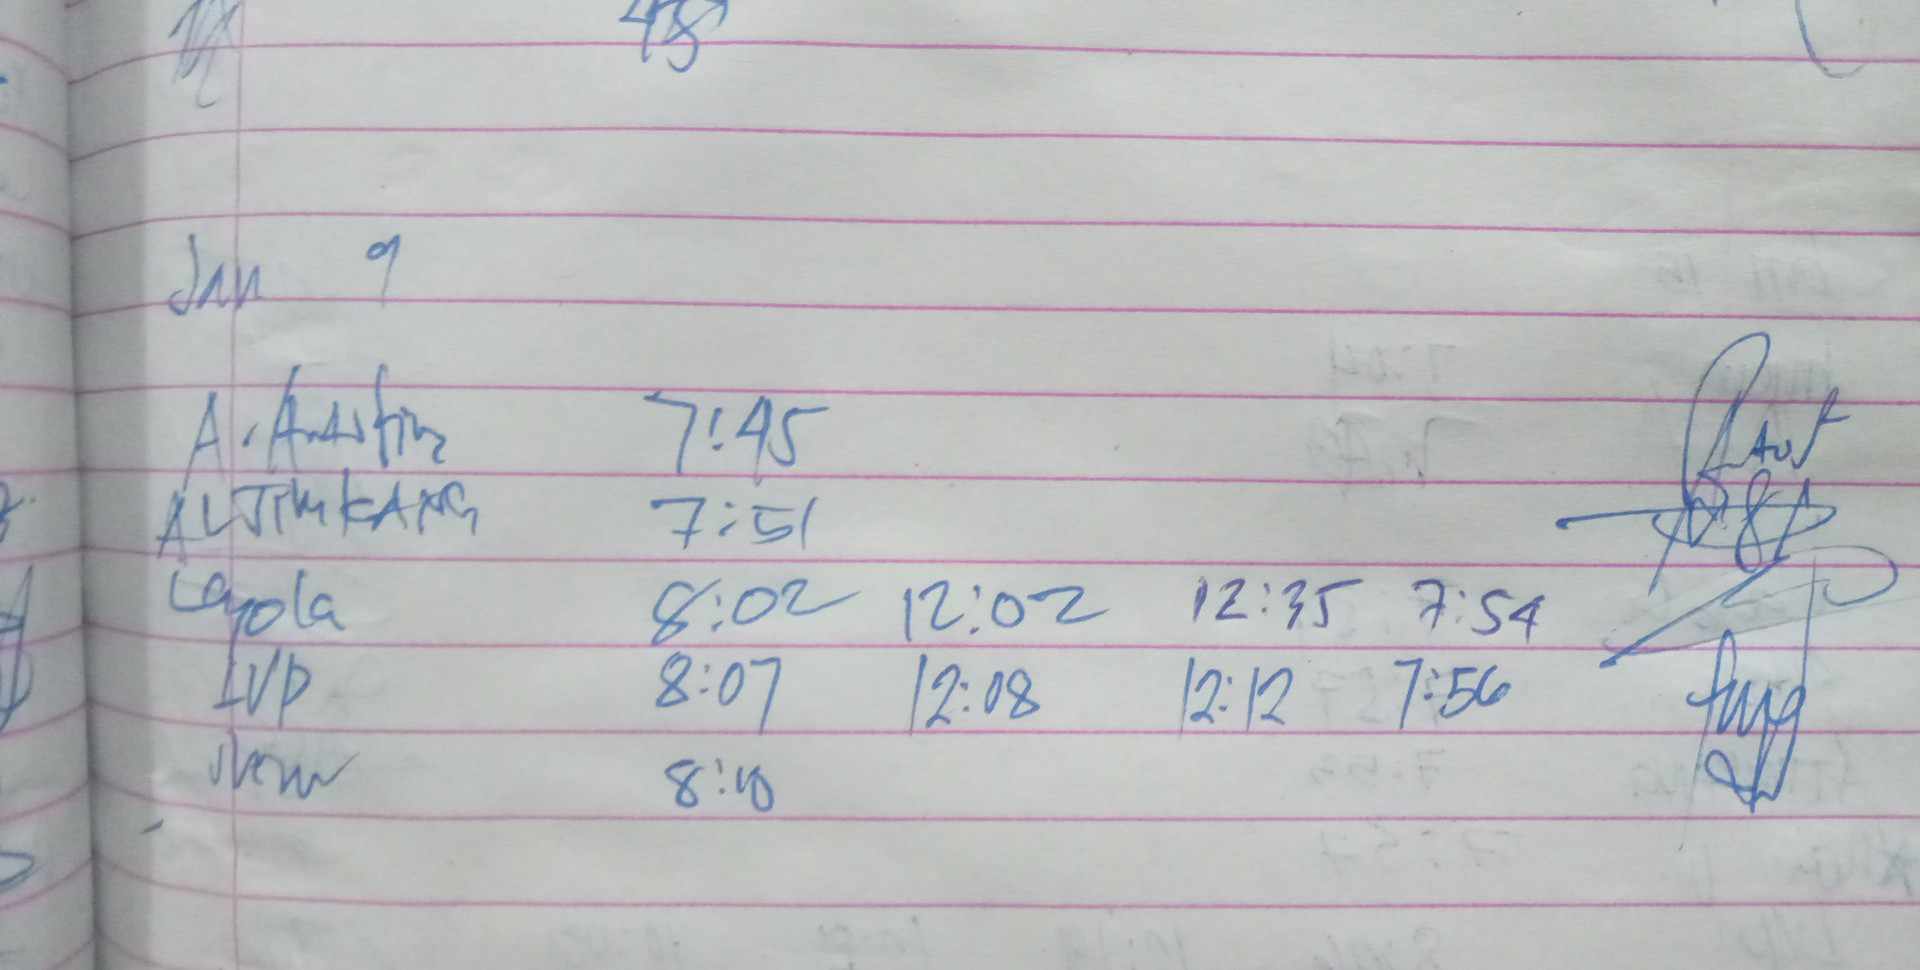 48
Jan 9
A. Austin 7:45
ALJIMKANG 7:51
Layola 8:02 12:02 12:35 7:54
IVP 8:07 12:08 12:12 7:56
8:10